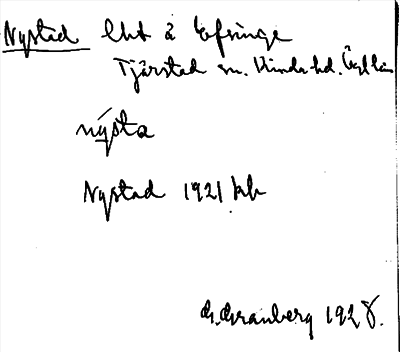 Nystad lht å Efringe
Tjärstad sn. Kinda hd. Ög län
nysta
Nystad 1921 kb
G. Granberg 1928.